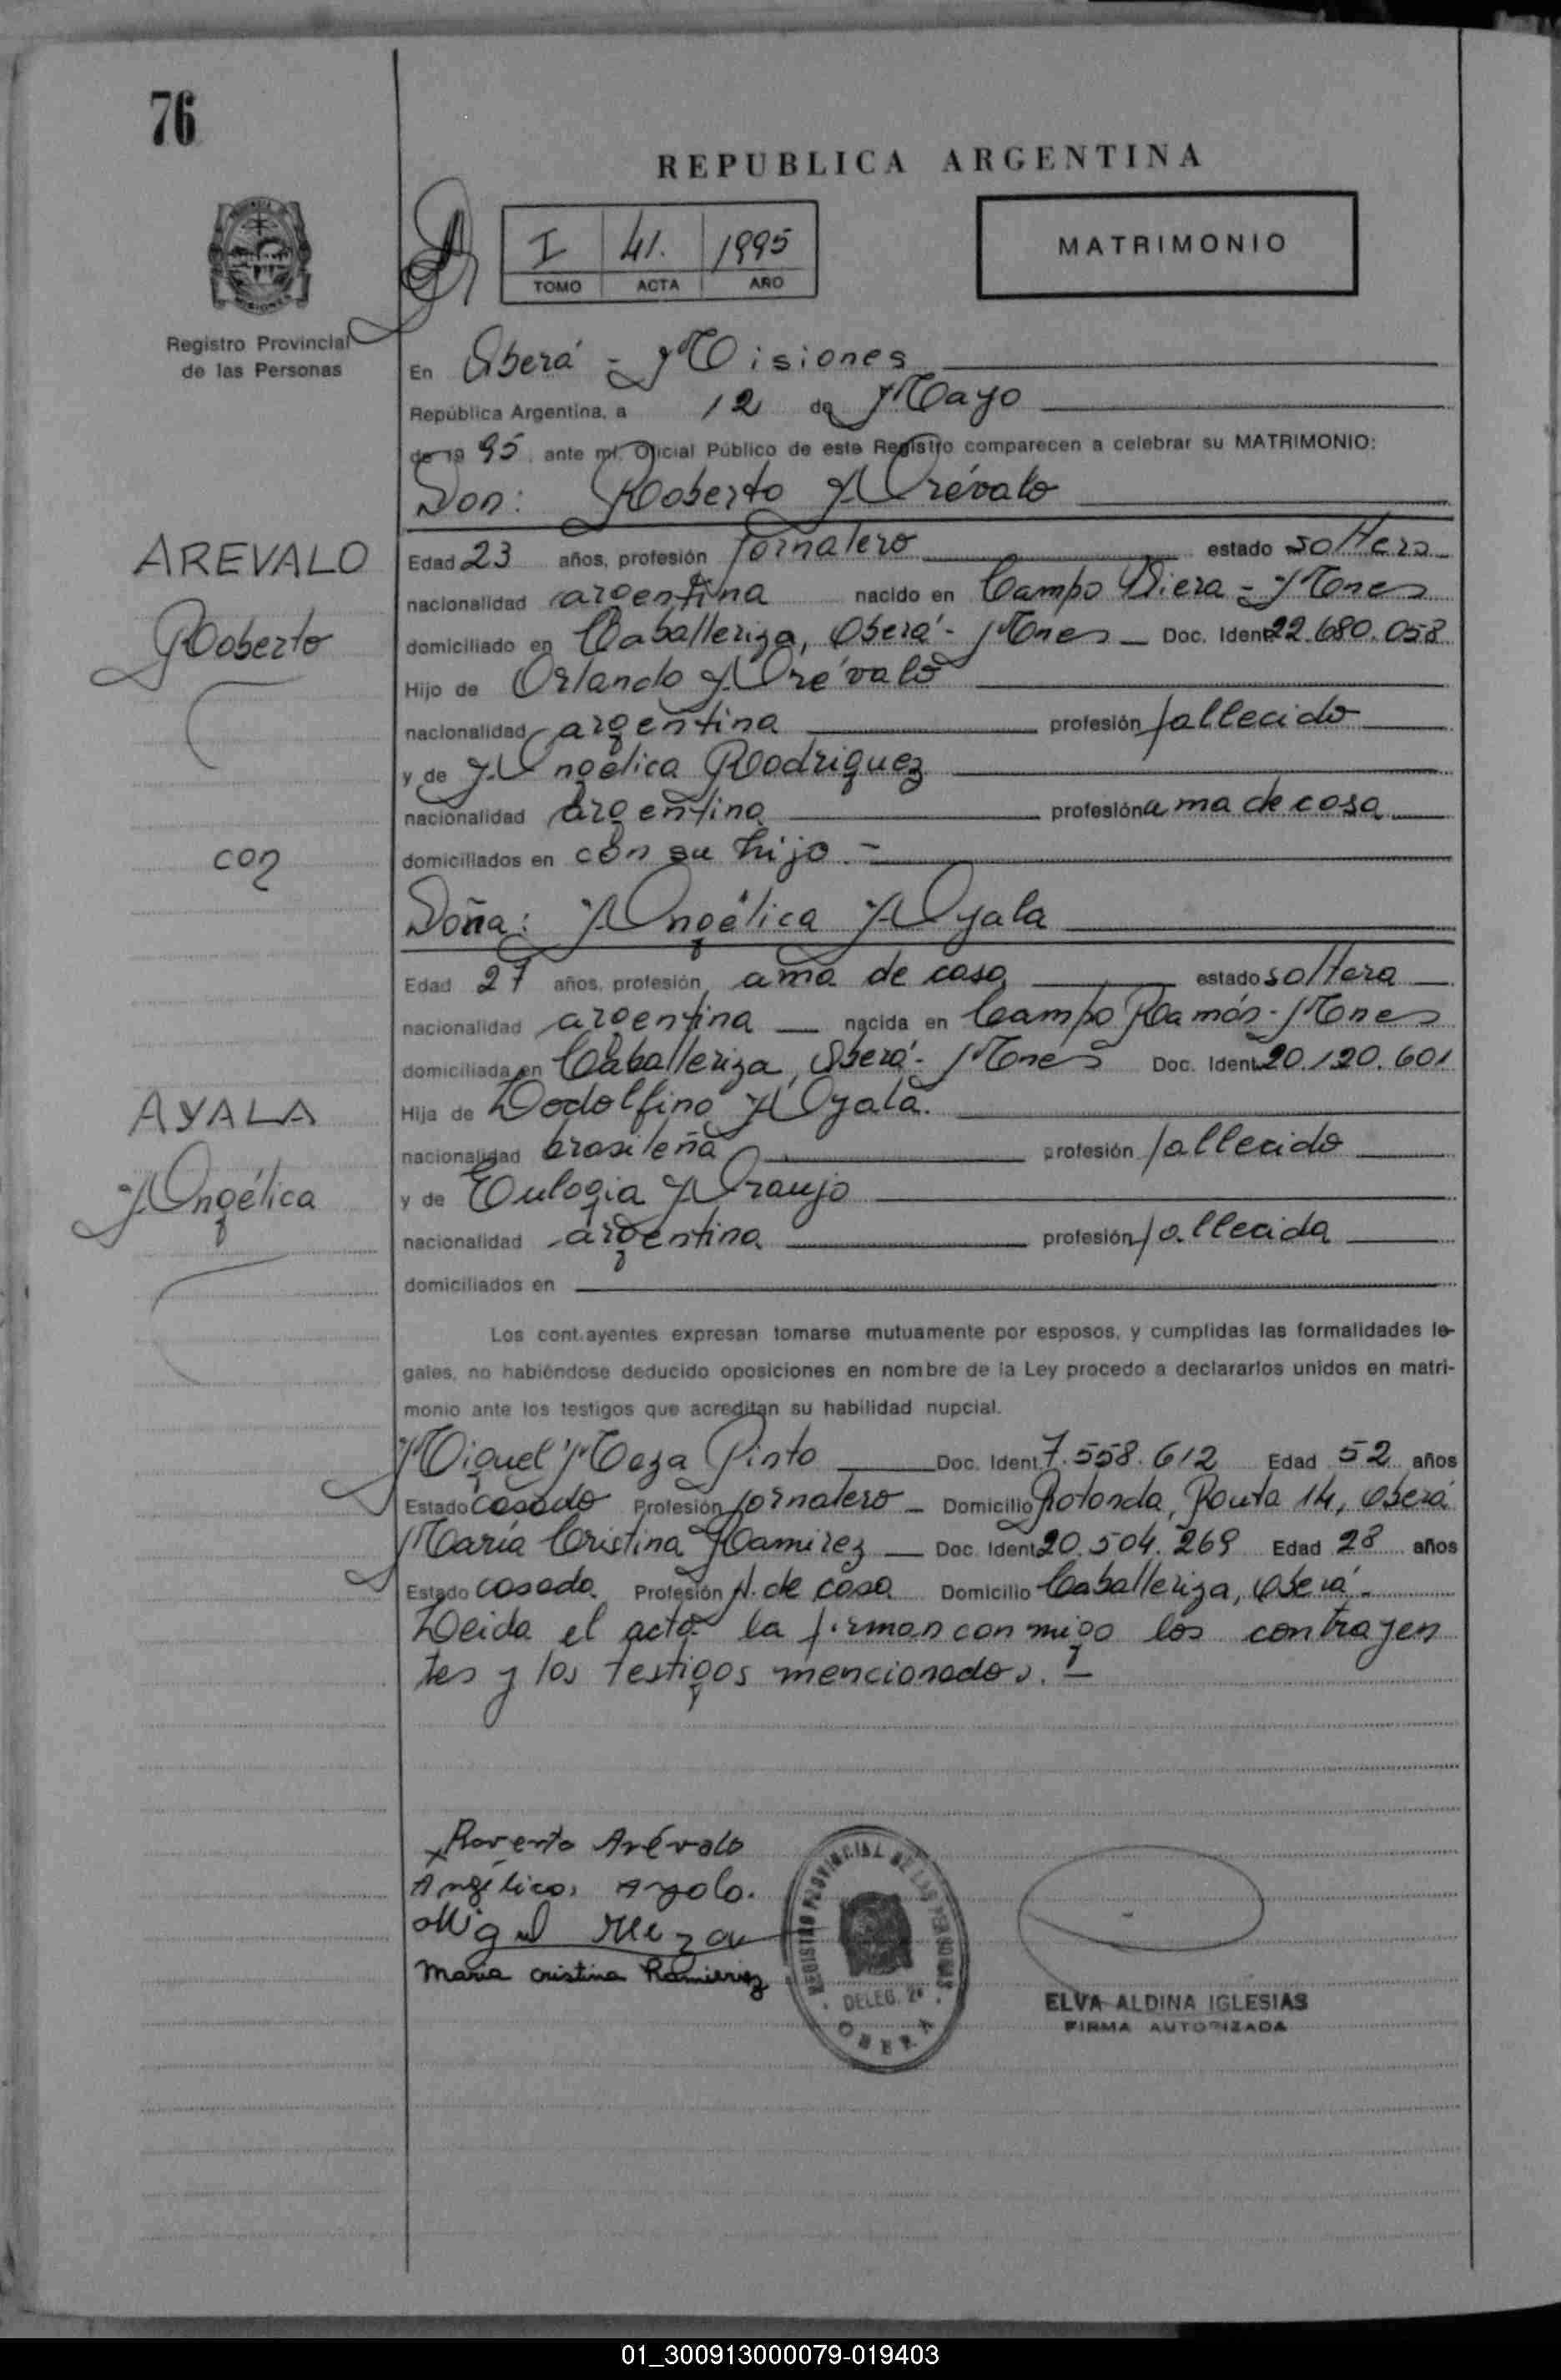 76
REPUBLICA ARGENTINA
I 41. 1995
TOMO ACTA AÑO
MATRIMONIO
Registro Provincial
de las Personas
En Oberá - Misiones
República Argentina, a 12 de Mayo
de 19 95, ante mí, Oficial Público de este Registro comparecen a celebrar su MATRIMONIO:
Don: Roberto Arévalo
AREVALO
Roberto
Edad 23 años, profesión jornalero estado soltero
nacionalidad argentina nacido en Campo Viera - Mones
domiciliado en Caballeriza, Oberá - Mones Doc. Ident. 22.680.058
Hijo de Orlando Arévalo
nacionalidad argentina profesión fallecido
y de Angélica Rodriguez
nacionalidad argentina profesión ama de casa
con
domiciliados en con su hijo.-
Doña: Angélica Ayala
Edad 27 años, profesión ama de casa estado soltera
nacionalidad argentina nacida en Campo Ramón - Mones
domiciliada en Caballeriza, Oberá - Mones Doc. Ident. 20.120.601
AYALA
Angélica
Hija de Dodolfino Ayala.
nacionalidad brasileña profesión fallecido
y de Eulogia Araujo
nacionalidad argentina profesión fallecida
domiciliados en
Los contrayentes expresan tomarse mutuamente por esposos, y cumplidas las formalidades le-
gales, no habiéndose deducido oposiciones en nombre de la Ley procedo a declararlos unidos en matri-
monio ante los testigos que acreditan su habilidad nupcial.
Miguel Meza Pinto Doc. Ident. 7.558.612 Edad 52 años
Estado casado Profesión jornalero Domicilio Rotonda, Routa 14, Oberá
María Cristina Ramirez Doc. Ident. 20.504.269 Edad 28 años
Estado casada Profesión A. de casa Domicilio Caballeriza, Oberá.
Leida el acta la firman conmigo los contrayen
tes y los testigos mencionados.-
Roverto Arévalo
Angélica Ayala.
Migel Meza
Maria cristina Ramieriez
REGISTRO PROVINCIAL DE LAS PERSONAS
DELEG. 2ª
OBERA
ELVA ALDINA IGLESIAS
FIRMA AUTORIZADA
01_300913000079-019403